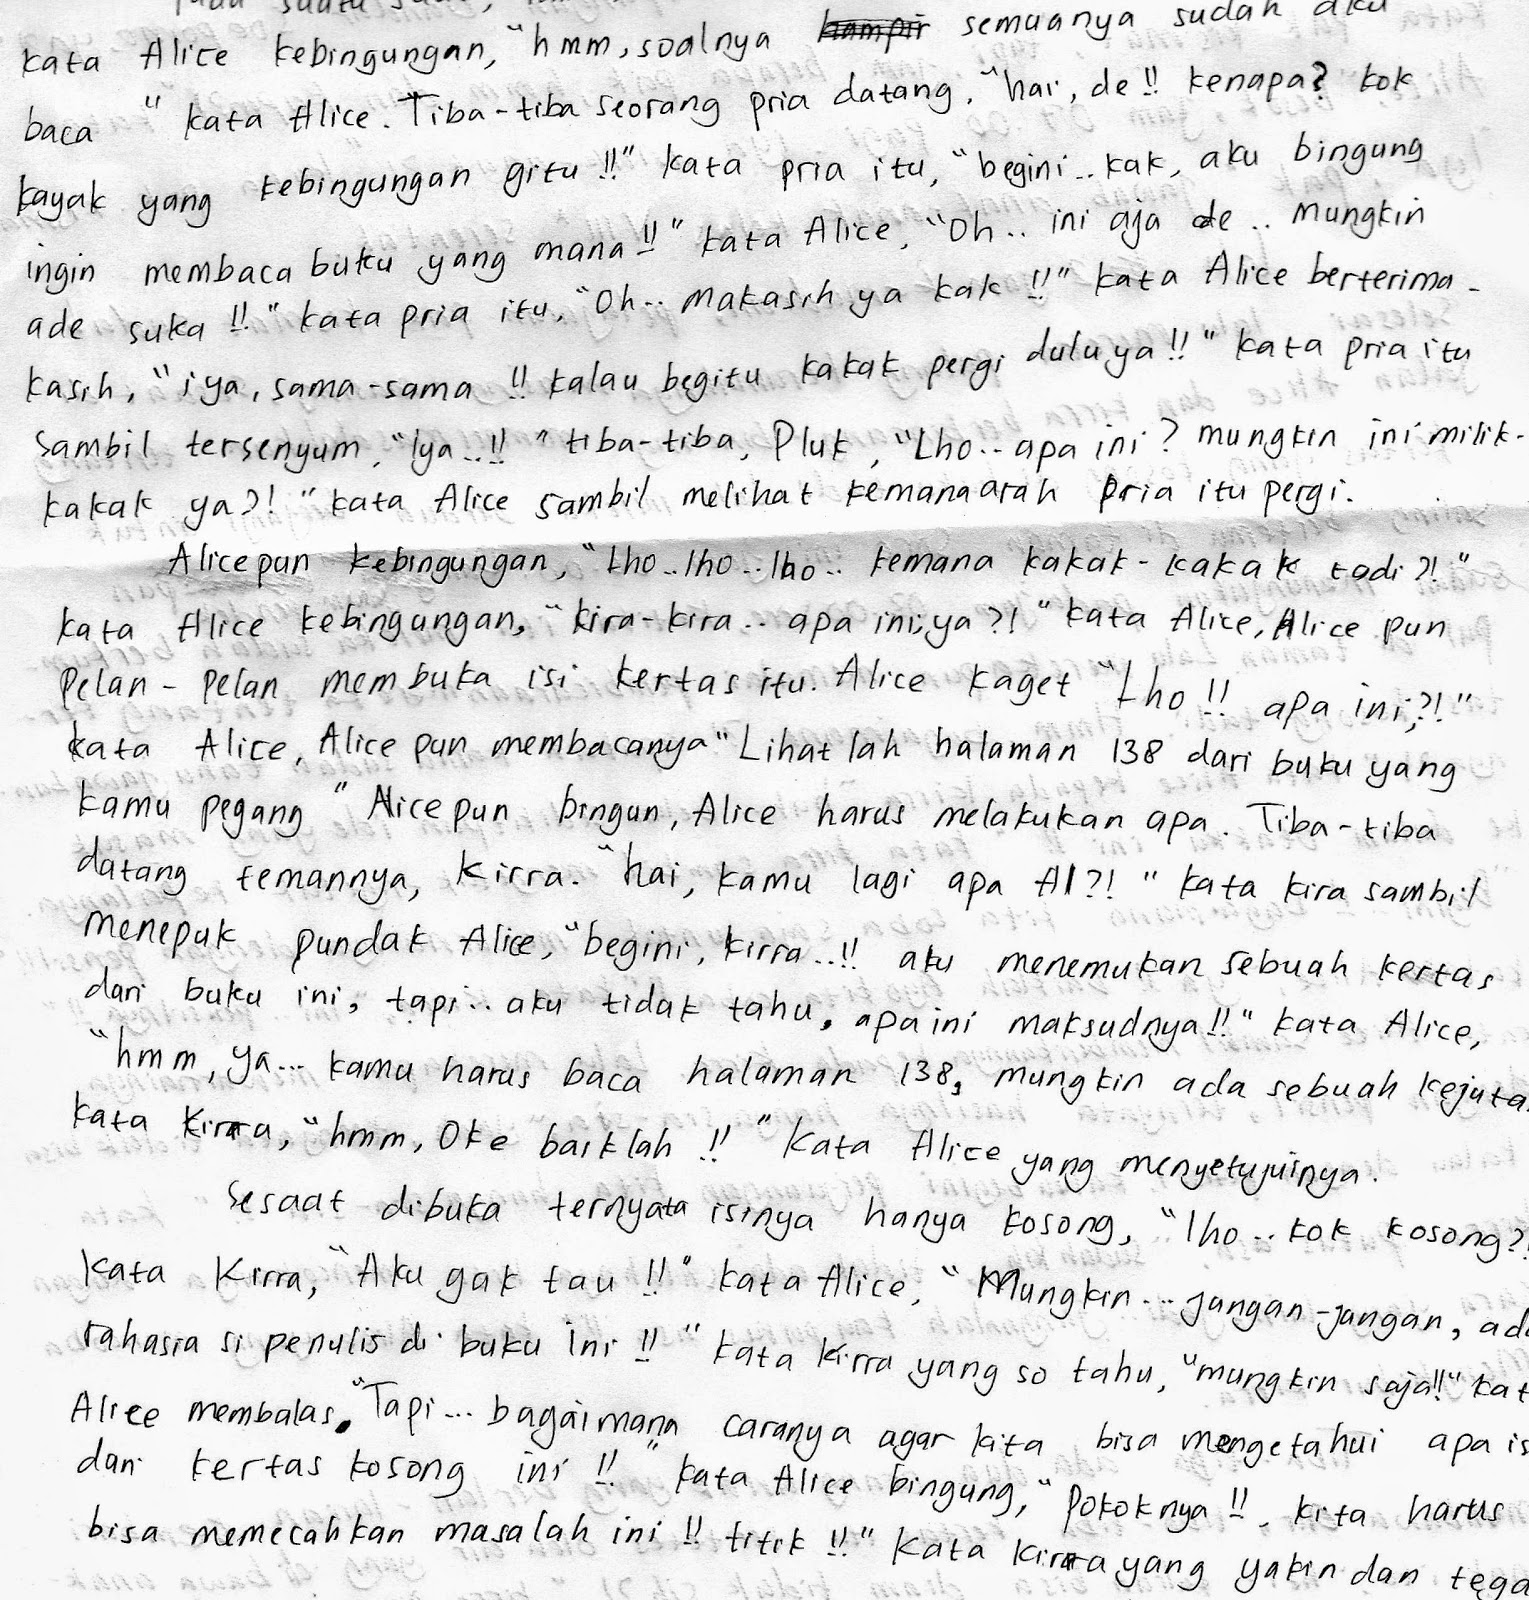 kata Alice kebingungan, "hmm, soalnya hampir semuanya sudah aku
baca " kata Alice. Tiba-tiba seorang pria datang, "hai, de!! kenapa? kok
kayak yang kebingungan gitu!!" kata pria itu, "begini.. kak, aku bingung
ingin membaca buku yang mana!!" kata Alice, "Oh.. ini aja de.. mungkin
ade suka!!" kata pria itu, "Oh.. makasih ya kak!!" kata Alice berterima-
kasih, "iya, sama-sama!! kalau begitu kakak pergi dulu ya!!" kata pria itu
sambil tersenyum, "Iya..!!" tiba-tiba, Pluk, "Lho.. apa ini? mungkin ini milik-
kakak ya?!" kata Alice sambil melihat kemana arah pria itu pergi.
Alice pun kebingungan, "Lho..lho..lho.. kemana kakak-kakak tadi?!"
kata Alice kebingungan, "kira-kira.. apa ini, ya?!" kata Alice, Alice pun
Pelan-pelan membuka isi kertas itu. Alice kaget "Lho!! apa ini,?!"
kata Alice, Alice pun membacanya "Lihat lah halaman 138 dari buku yang
kamu pegang" Alice pun bingun, Alice harus melakukan apa. Tiba-tiba
datang temannya, Kirra. "hai, kamu lagi apa Al?!" kata kira sambil
menepuk pundak Alice, "begini, kirra..!! aku menemukan sebuah kertas
dari buku ini, tapi.. aku tidak tahu, apa ini maksudnya!!" kata Alice,
"hmm, ya... kamu harus baca halaman 138, mungkin ada sebuah kejuta
kata Kirra, "hmm, Oke baiklah!!" kata Alice yang menyetujuinya.
Sesaat dibuka ternyata isinya hanya kosong, "lho.. kok kosong?!
kata Kirra, "Aku gak tau!!" kata Alice, "Mungkin... jangan-jangan, ada
rahasia si penulis di buku ini!!" kata Kirra yang so tahu, "mungkin saja!!" kat
Alice membalas, "Tapi... bagaimana caranya agar kita bisa mengetahui apa is
dari kertas kosong ini!!" kata Alice bingung, "Pokoknya!!, kita harus
bisa memecahkan masalah ini!! titik!!" kata kirra yang yakin dan tega